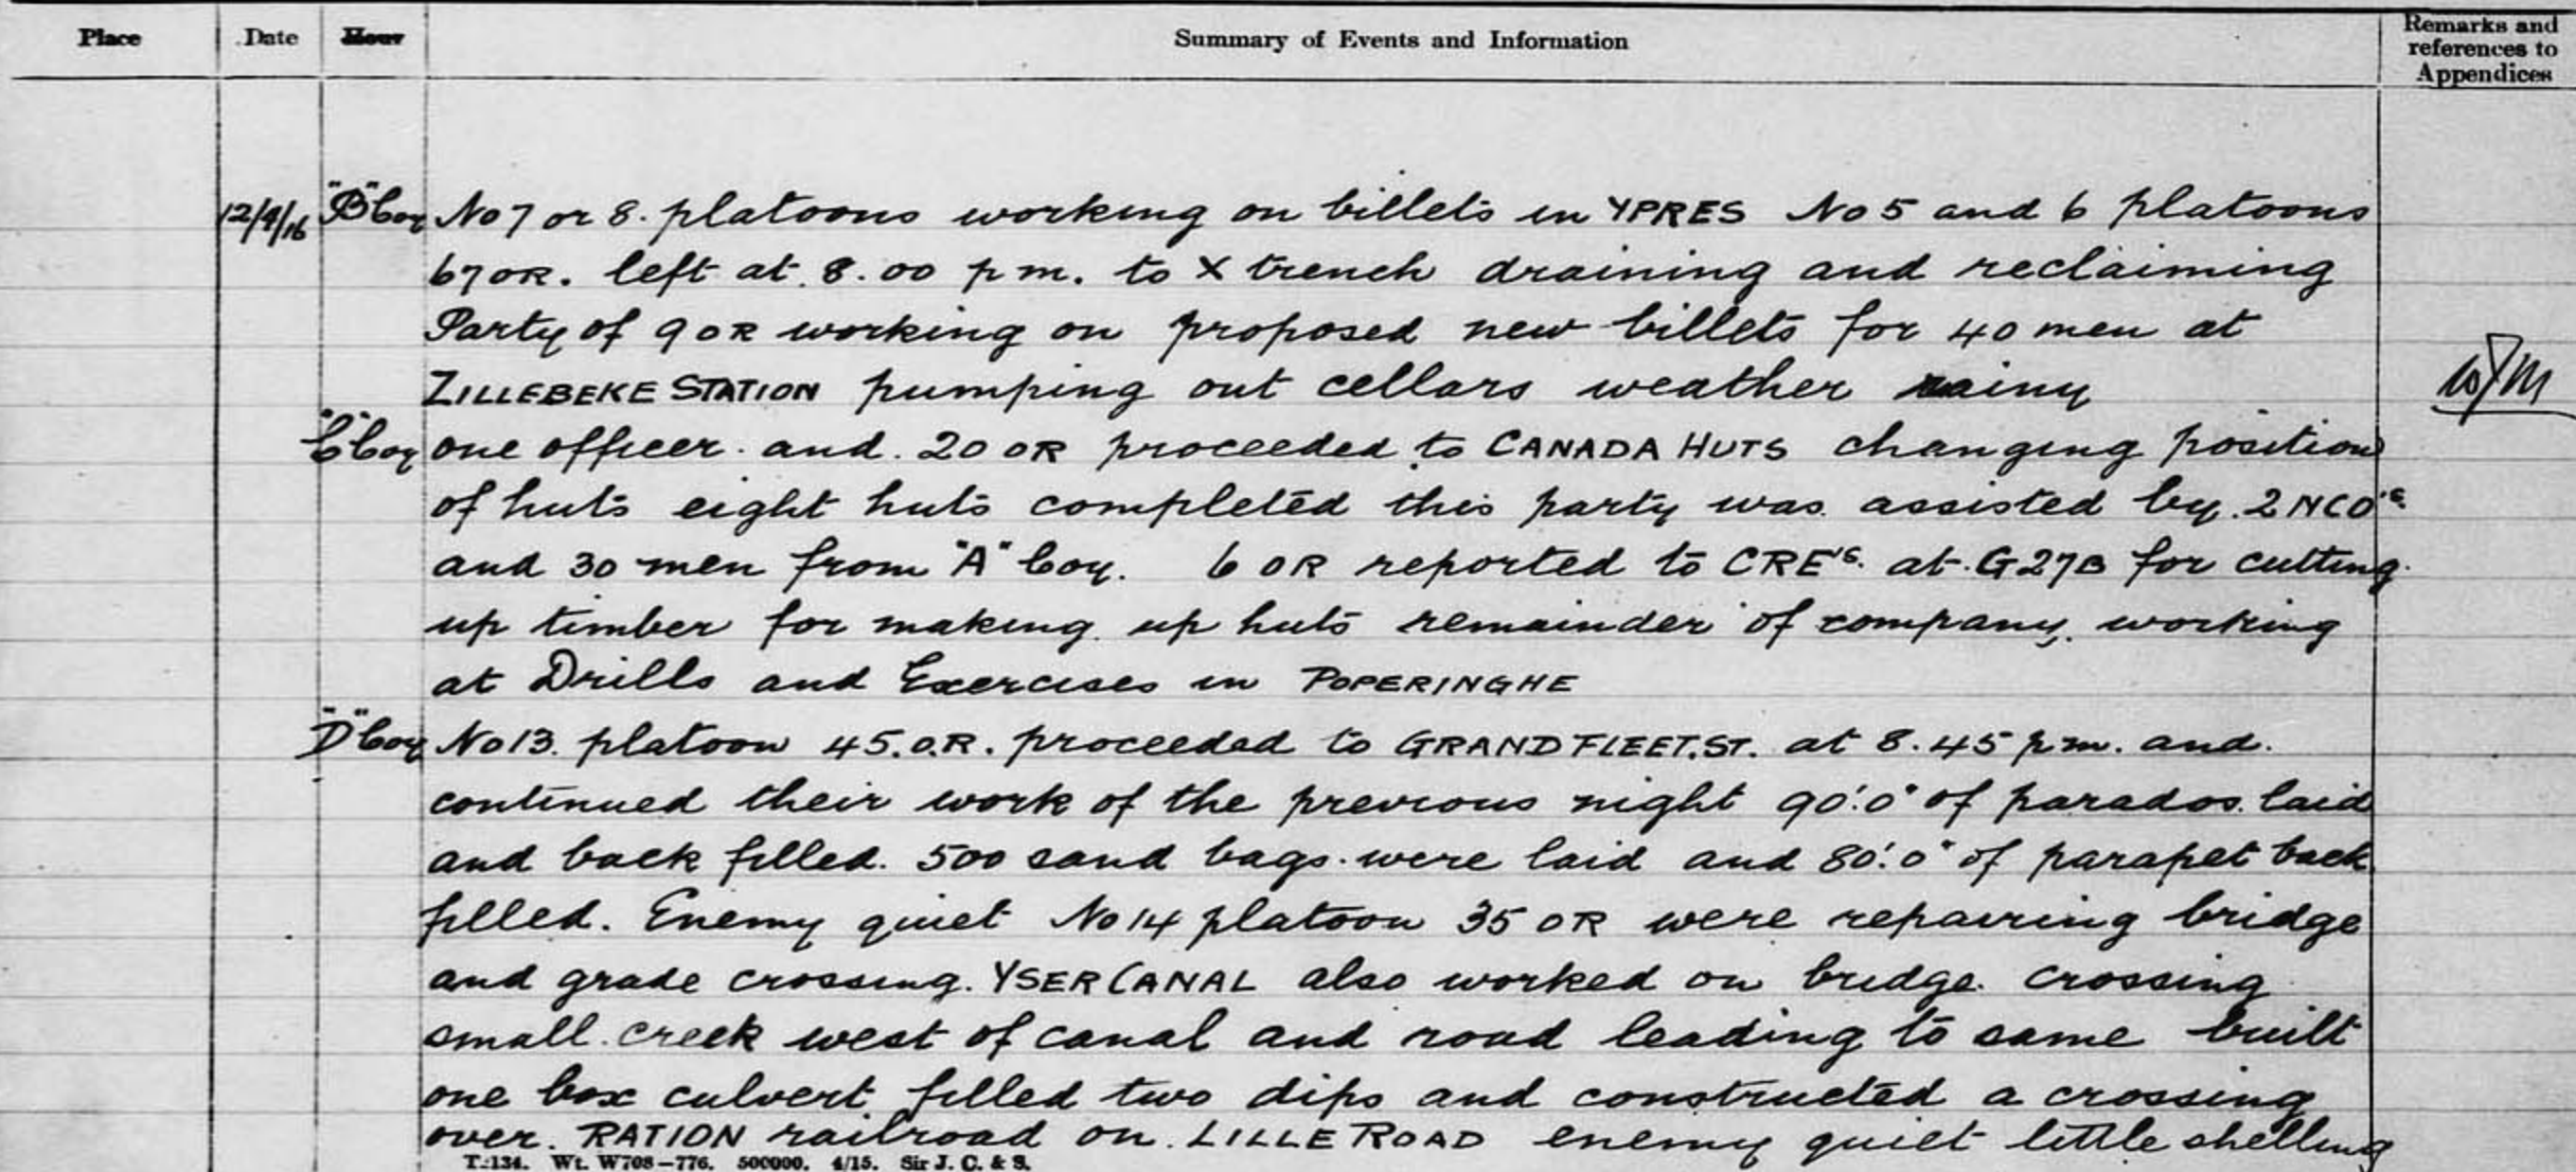 Place Date Hour Summary of Events and Information Remarks and references to Appendices
12/4/16 "B" Coy No 7 or 8. platoons working on billets in YPRES No 5 and 6 platoons
67 OR. left at 8.00 p m. to X trench draining and reclaiming
Party of 9 OR working on proposed new billets for 40 men at
ZILLEBEKE STATION pumping out cellars weather rainy
"C" Coy one officer and 20 OR proceeded to CANADA HUTS changing position
of huts eight huts completed this party was assisted by 2 NCO's
and 30 men from "A" Coy. 6 OR reported to CRE's. at G27B for cutting
up timber for making up huts remainder of company working
at Drills and Exercises in POPERINGHE
"D" Coy No 13. platoon 45. O.R. proceeded to GRAND FLEET. ST. at 8.45 p.m. and
continued their work of the previous night 90'.0" of parados laid
and back filled. 500 sand bags were laid and 80'.0" of parapet back
filled. Enemy quiet No 14 platoon 35 OR were repairing bridge
and grade crossing. YSER CANAL also worked on bridge crossing
small creek west of canal and road leading to same built
one box culvert filled two dips and constructed a crossing
over RATION railroad on LILLE ROAD enemy quiet little shelling
T.134. Wt. W708-776. 500000. 4/15. Sir J. C. & S.